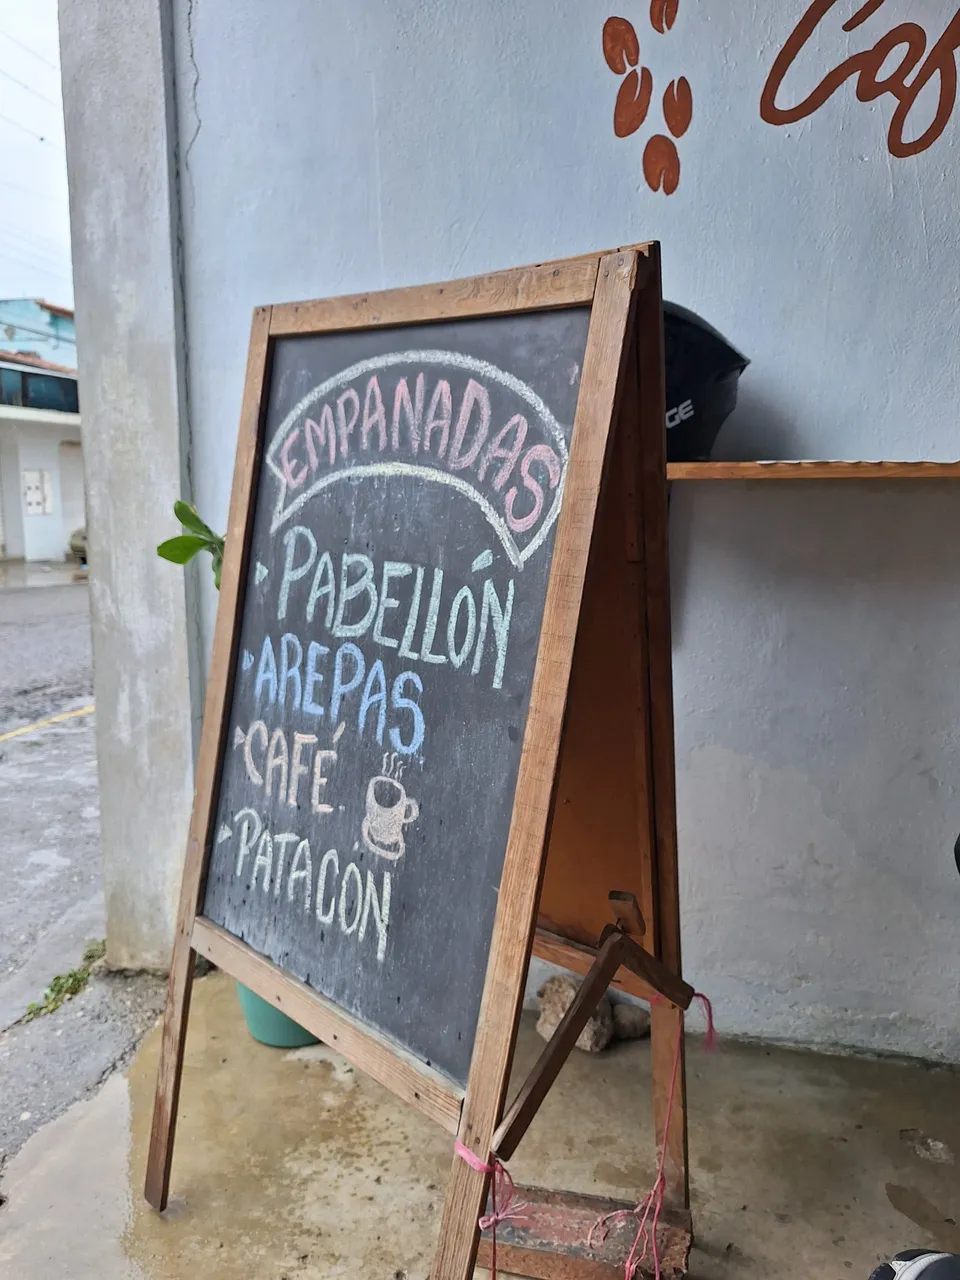 Caf
GE
EMPANADAS
PABELLÓN
AREPAS
CAFÉ
PATACÓN